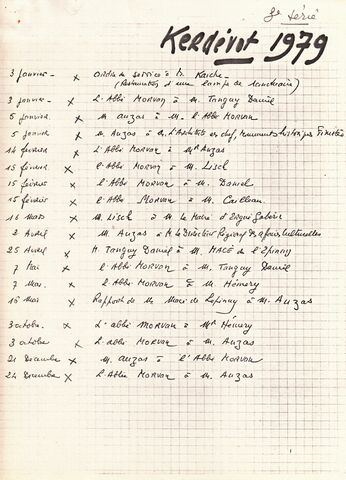 3e série
Kerdévot 1979
3 Janvier x Ordre de service à M.
(Restauration d'une
3 Janvier x L'Abbé MORVAN à M. Tanguy Daniel
5 Janvier x M. Auzas à L'Abbé MORVAN
5 Janvier x M. Auzas à L'Architecte en chef, Monuments historiques Finistère
14 février x L'Abbé MORVAN à Mr Auzas
15 février x L'Abbé MORVAN à M. Lisch
15 février x L'Abbé MORVAN à M. Daniel
15 février x L'Abbé MORVAN à M. Cailleau
16 Mars x M. Lisch à M. le Maire d'Ergué Gabéric
2 Avril x M. Auzas à M. le Directeur Régional des affaires culturelles
25 Avril x M. Tanguy Daniel à M. MACÉ de L'Epinay
7 Mai x L'Abbé MORVAN à M. Tanguy Daniel
7 Mai x L'Abbé MORVAN à M. Hémery
16 Mai x Rapport de M. Macé de Lépinay à M. Auzas
3 octobre x L'abbé MORVAN à Mr Hémery
3 octobre x L'abbé MORVAN à M. Auzas
21 Décembre x M. Auzas à L'Abbé MORVAN
24 Décembre x L'Abbé MORVAN à M. Auzas